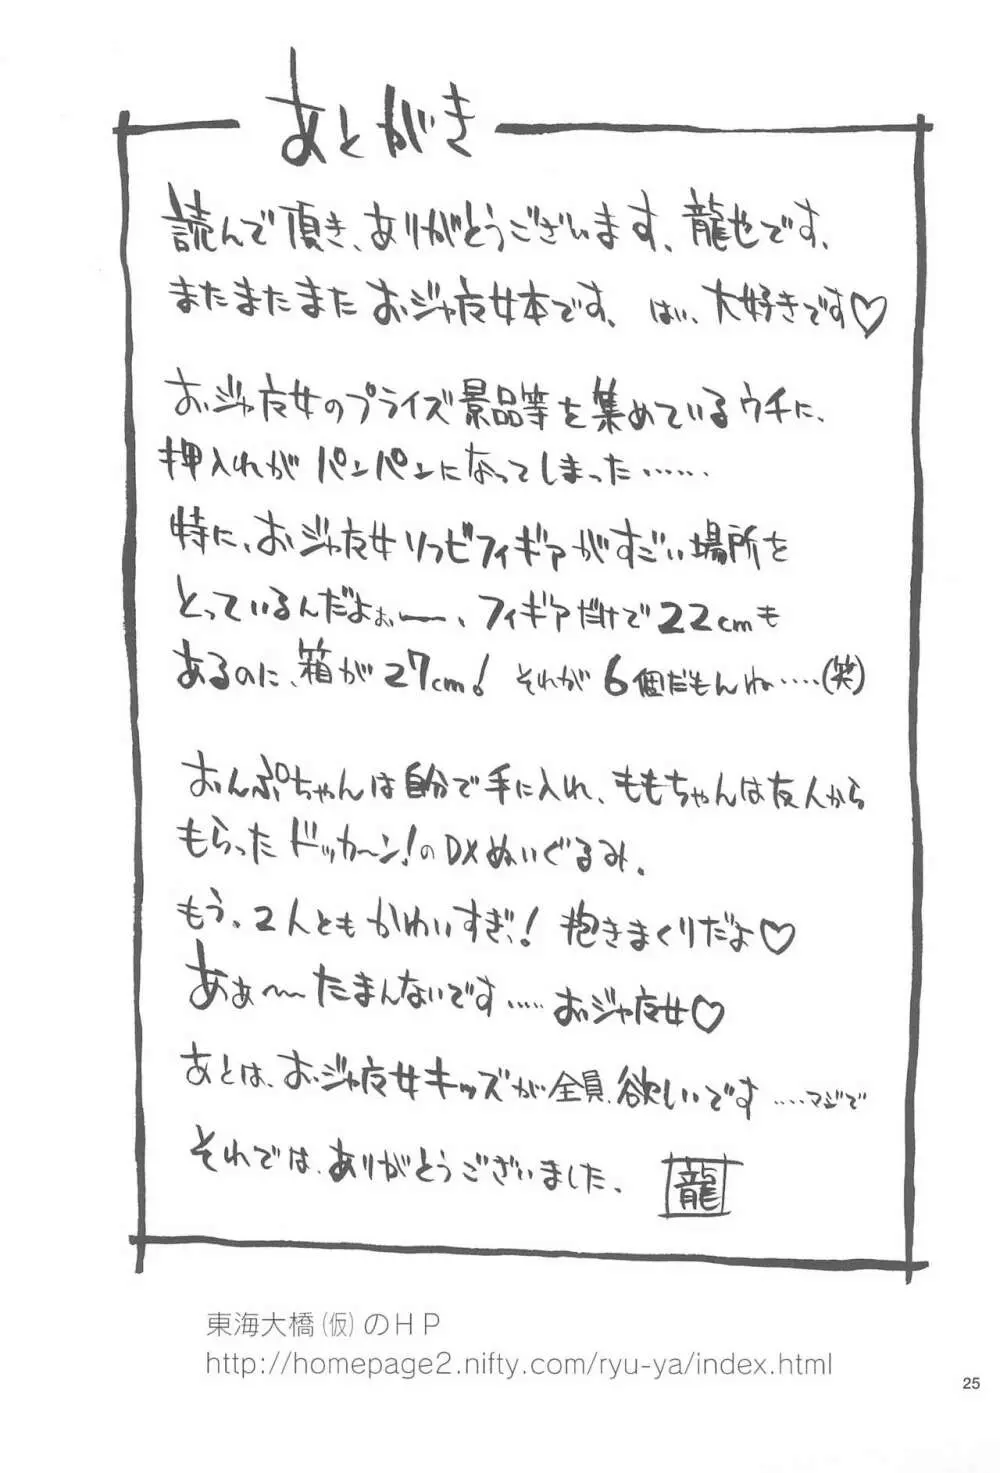 あとがき
読んで頂き、ありがとうございます、龍也です、
またまたまた おジャ魔女本です、はい、大好きです♡
おジャ魔女のプライズ景品等を集めているウチに、
押入れが パンパンになってしまった……
特に、おジャ魔女ソフビフィギアがすごい場所を
とっているんだよぉー、フィギアだけで22cmも
あるのに、箱が27cm! それが6個だもんね……(笑)
おんぷちゃんは自分で手に入れ、ももちゃんは友人から
もらったドッカ〜ン!のDXぬいぐるみ。
もう、2人ともかわいすぎ! 抱きまくりだよ♡
あぁ〜たまんないです……おジャ魔女♡
あとは、おジャ魔女キッズが全員、欲しいです……マジで
それでは、ありがとうございました。 龍
東海大橋(仮)のHP
http://homepage2.nifty.com/ryu-ya/index.html
25